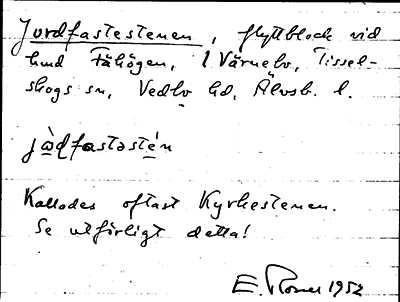 Jordfastestenen, flyttblock vid
hmd Fähögen, 1 Värnebo, Tissel-
skogs sn, Vedbo hd, Älvsb. l.
jo̱̊̀dfastəsté̱n
Kallades oftast Kyrkestenen.
Se utförligt detta!
E. Rosell 1952